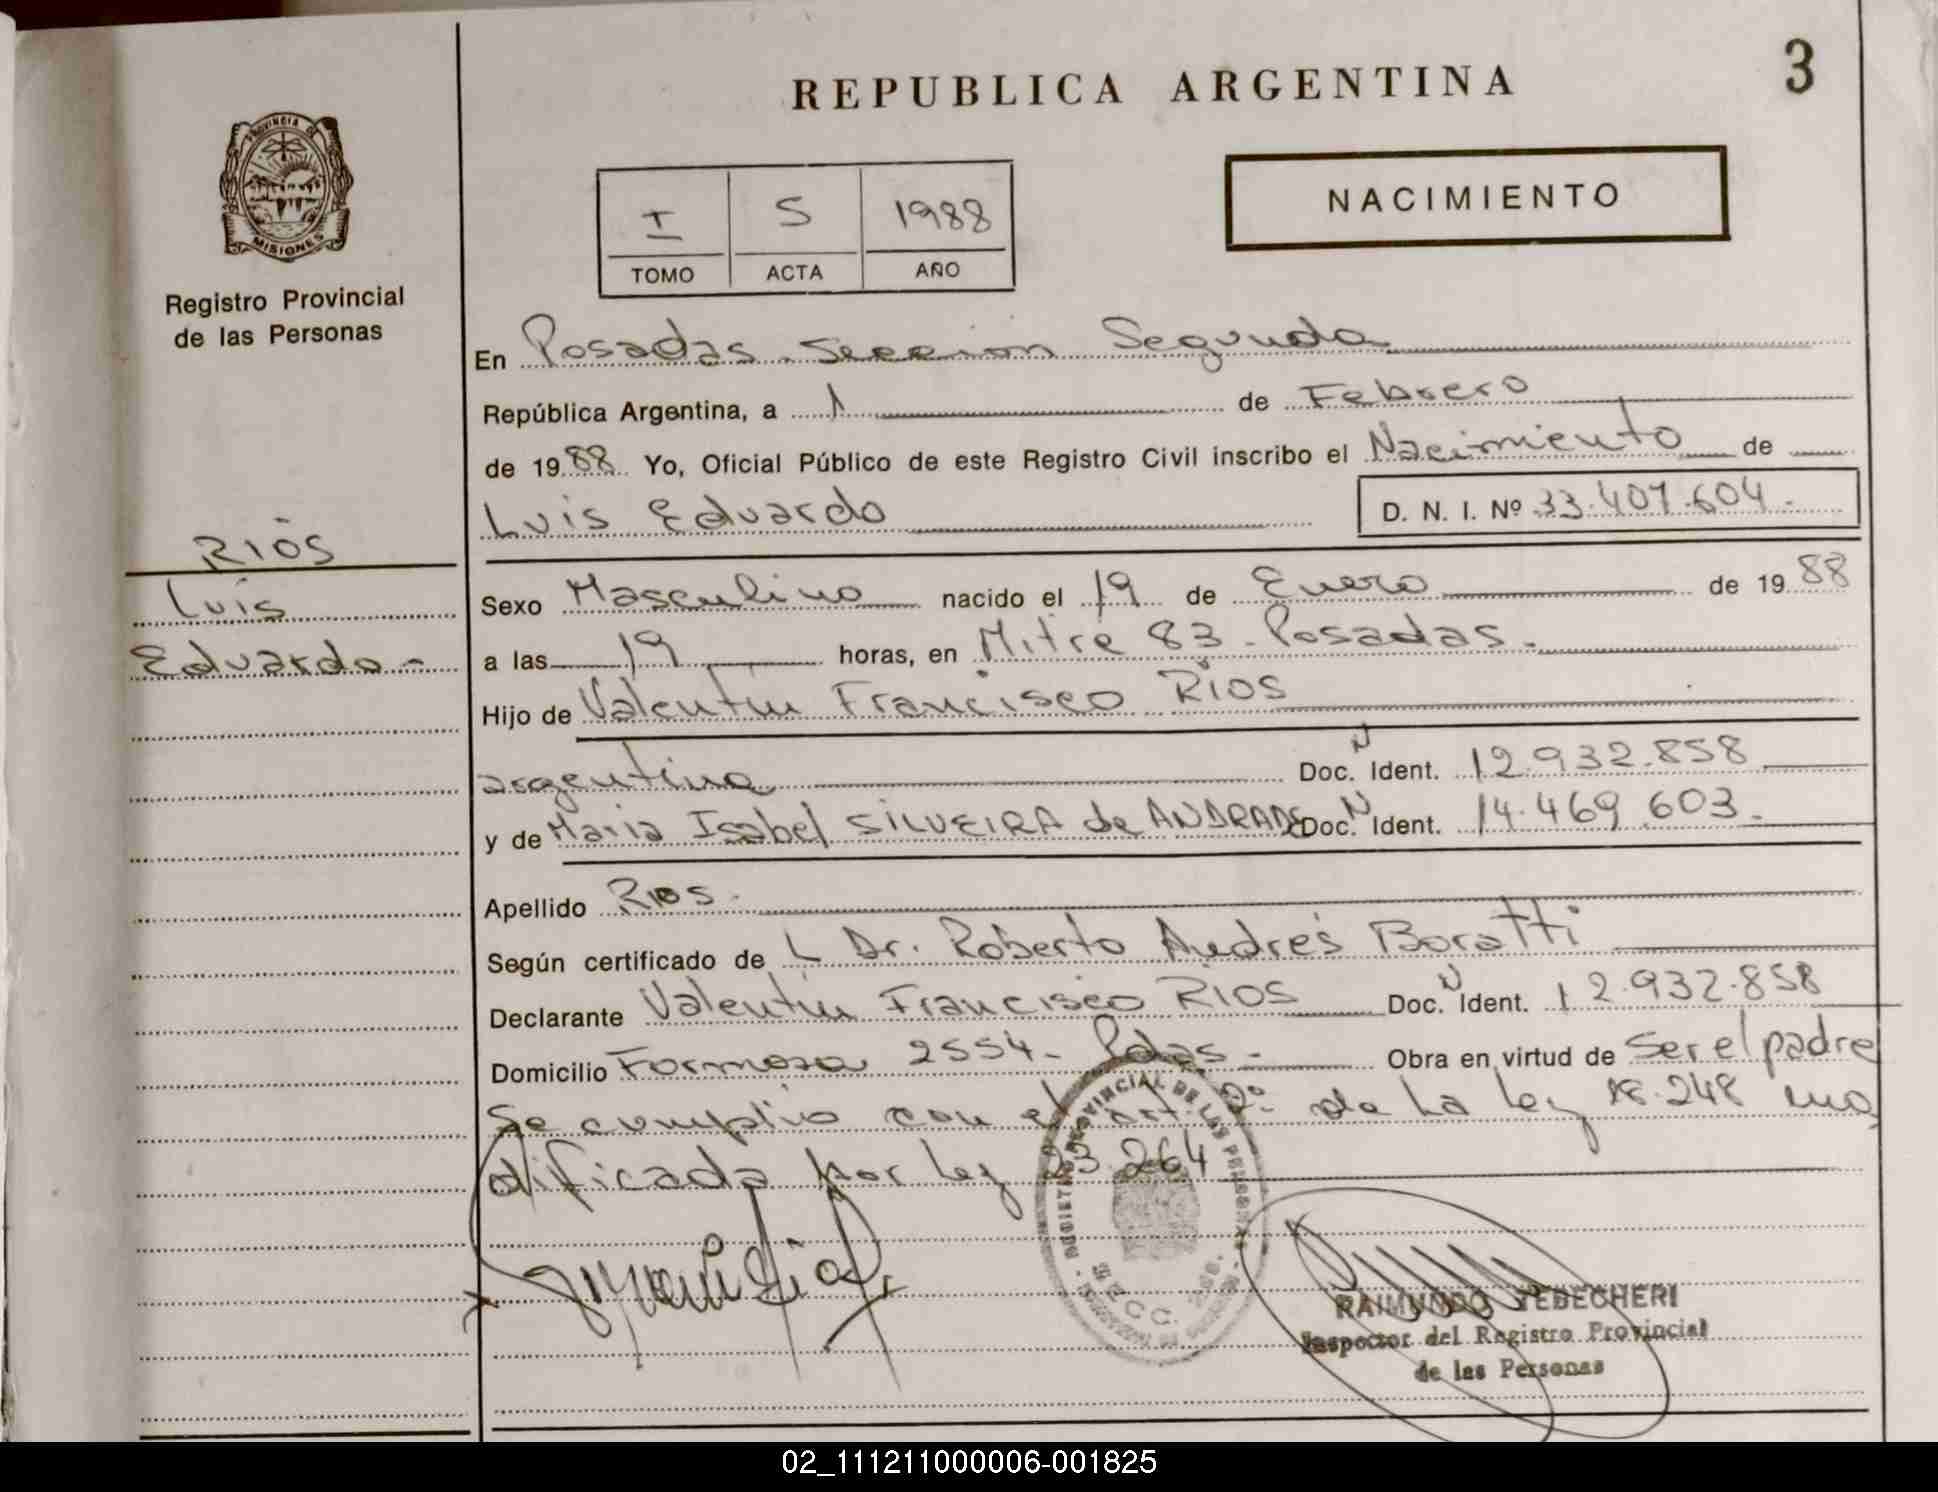 REPUBLICA ARGENTINA
3
PROVINCIA DE
MISIONES
Registro Provincial
de las Personas
I 5 1988
TOMO ACTA AÑO
NACIMIENTO
En Posadas Seccion Segunda
República Argentina, a 1 de Febrero
de 1988 Yo, Oficial Público de este Registro Civil inscribo el Nacimiento de
Luis Eduardo D. N. I. Nº 33.407.604.-
RIOS
Luis
Eduardo-
Sexo Masculino nacido el 19 de Enero de 1988
a las 19 horas, en Mitre 83 - Posadas.
Hijo de Valentin Francisco RIOS
argentino Doc. N Ident. 12.932.858
y de Maria Isabel SILVEIRA de ANDRADE Doc. N Ident. 14.469.603.
Apellido Rios.
Según certificado de L Dr. Roberto Andrés Boratti
Declarante Valentin Francisco RIOS Doc. N Ident. 12.932.858
Domicilio Formosa 2554- Pdas.- Obra en virtud de Ser el padre
Se cumplio con el art. 2º de La Ley 18.248 mo
dificada por Ley 23.264
RAIMUNDO YEBECHERI
Inspector del Registro Provincial
de las Personas
02_111211000006-001825